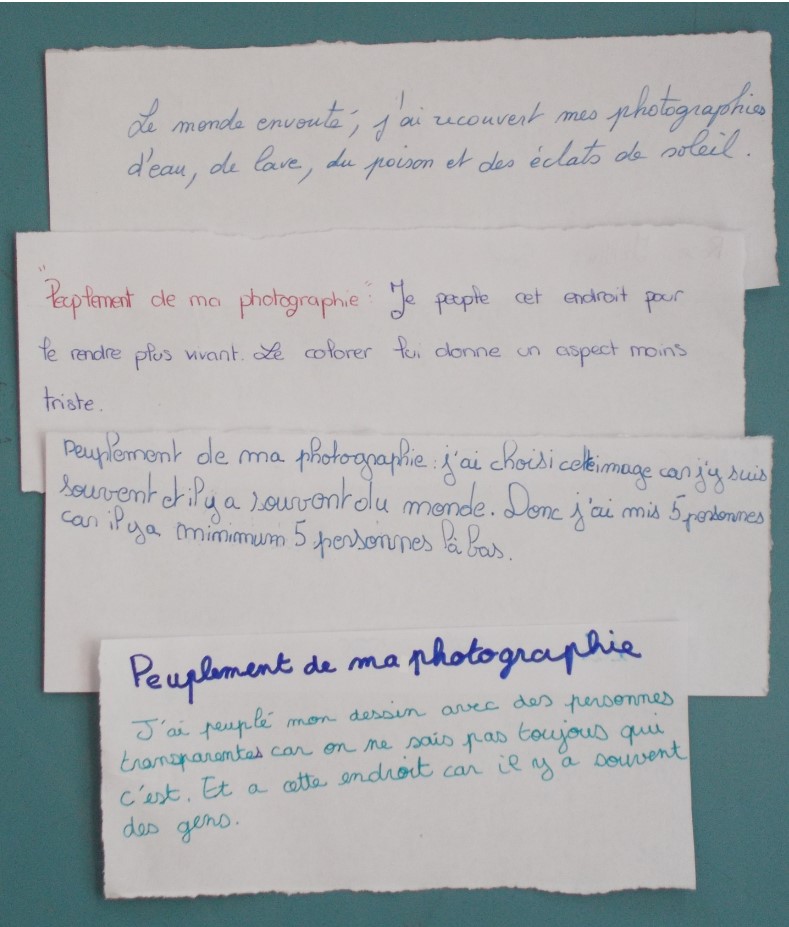 Le monde envouté; j'ai recouvert mes photographies
d'eau, de lave, du poison et des éclats de soleil.
"Peuplement de ma photographie": Je peuple cet endroit pour
le rendre plus vivant. Le colorer lui donne un aspect moins
triste.
Peuplement de ma photographie: j'ai choisi cette image car j'y suis
souvent et il y a souvent du monde. Donc j'ai mis 5 personnes
car il y a minimum 5 personnes là bas.
Peuplement de ma photographie
J'ai peuplé mon dessin avec des personnes
transparentes car on ne sais pas toujous qui
c'est. Et a cette endroit car il y a souvent
des gens.